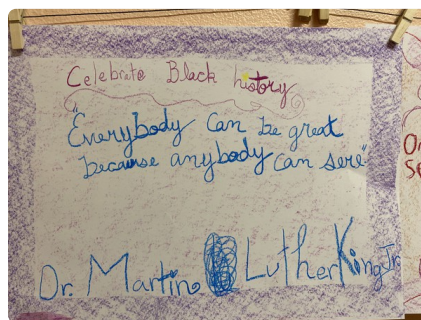 Celebrate Black history
"Everybody can be great
because anybody can sere"
Dr. Martin Luther King Jr.